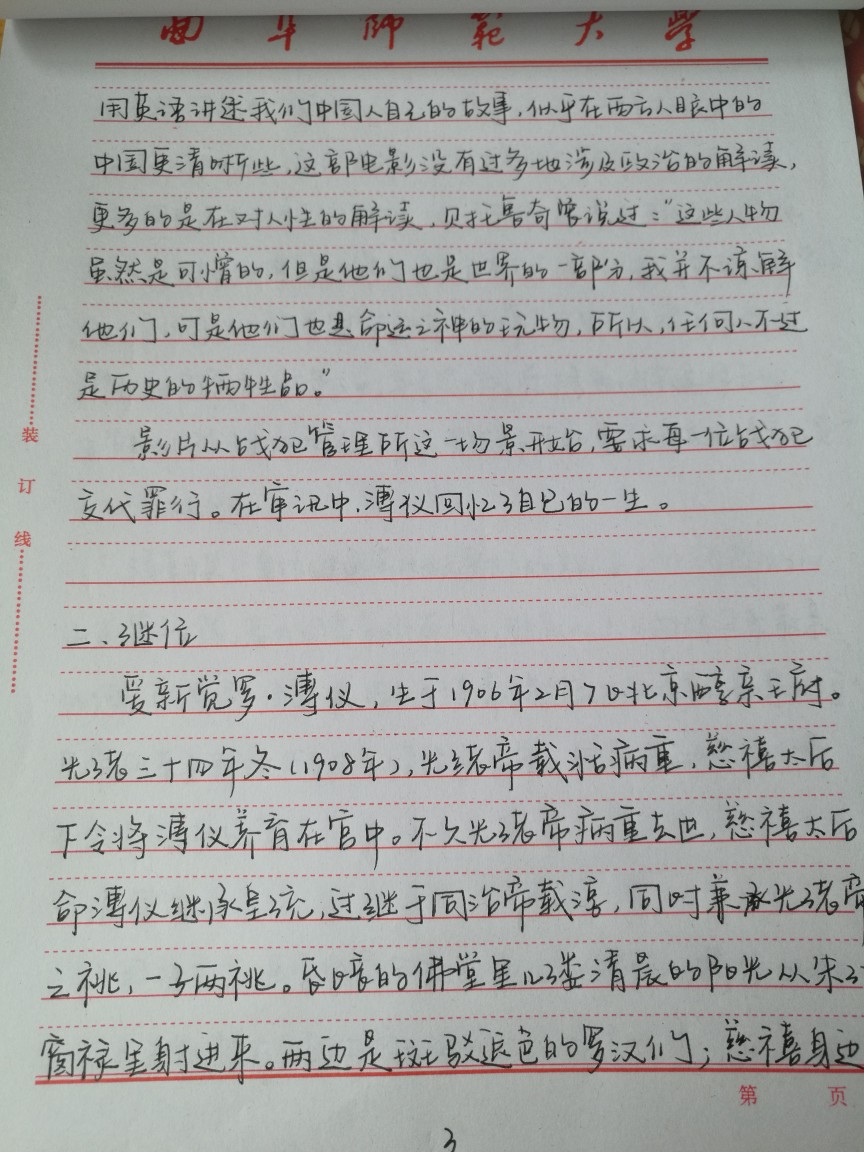 曲阜师范大学
用英语讲述我们中国人自己的故事,似乎在西方人眼中的
中国更清晰些,这部电影没有过多地涉及政治的解读,
更多的是在对人性的解读,贝托鲁奇曾说过:“这些人物
虽然是可憎的,但是他们也是世界的一部分,我并不谅解
他们,可是他们也是命运之神的玩物,所以,任何人不过
是历史的牺牲品。”
影片从战犯管理所这一场景开始,要求每一位战犯
交代罪行。在审讯中,溥仪回忆了自己的一生。
二、继位
爱新觉罗·溥仪,生于1906年2月7日北京醇亲王府。
光绪三十四年冬(1908年),光绪帝载湉病重,慈禧太后
下令将溥仪养育在宫中。不久光绪帝病重去世,慈禧太后
命溥仪继承皇统,过继于同治帝载淳,同时兼承光绪帝
之祧,一子两祧。昏暗的佛堂里几缕清晨的阳光从朱红
窗棂里射进来。两边是斑驳退色的罗汉们;慈禧身边
装
订
线
第 页
3